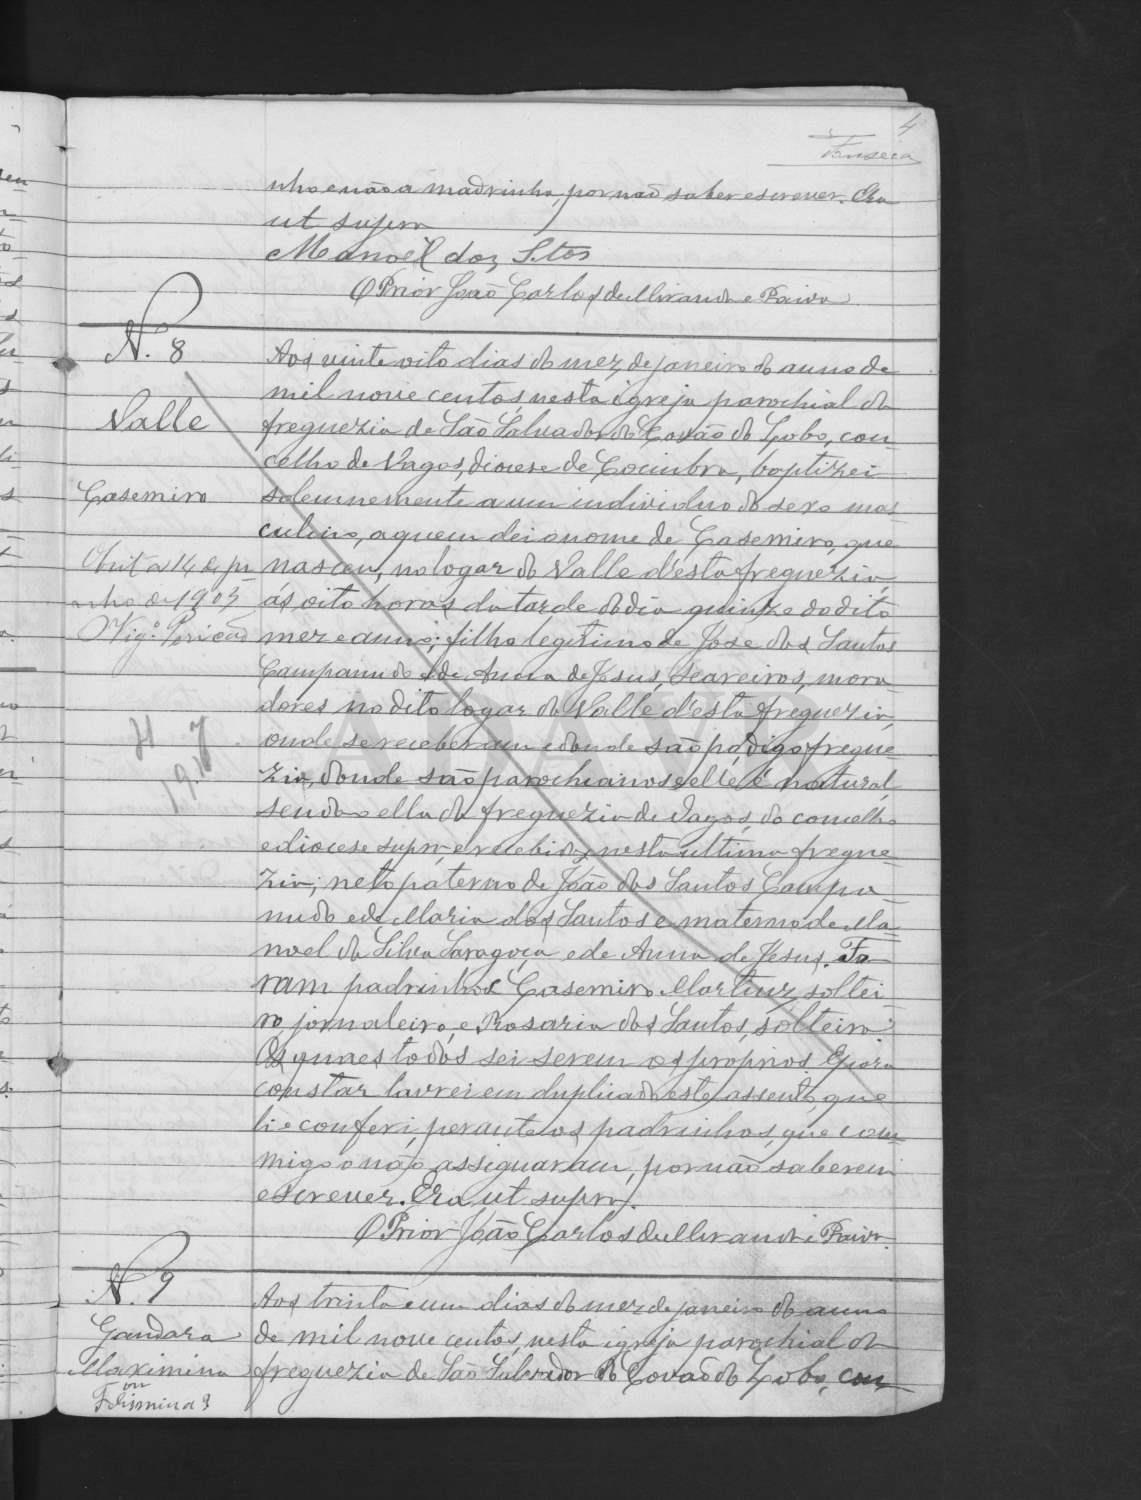 4
Fonseca
nho e não a madrinha, por não saber escrever. Era
ut supra
Manoel dos S.tos
O Prior João Carlos de Miranda e Paiva
N. 8
Valle
Casemiro
Obiit a 14 de ju
nho de 1903
Vig.º
H 7
Aos vinte oito dias do mez de janeiro do anno de
mil nove centos, nesta igreja parochial da
freguezia de São Salvador do Covão do Lobo, con-
celho de Vagos, diocese de Coimbra, baptizei
solemnemente a um individuo do sexo mas-
culino, a quem dei o nome de Casemiro, que
nasceu, no logar do Valle d'esta freguezia,
ás oito horas da tarde do dia quinze do dito
mez e anno; filho legitimo de José dos Santos
Campanudo e de Anna de Jesus, seareiros, mora-
dores no dito logar do Valle d'esta freguezia,
onde se receberam e donde são, digo fregue-
zia, donde são parochianos e elle é natural,
sendo ella da freguezia de Vagos, do concelho
e diocese supra, e recebidos nesta ultima fregue-
zia; neto paterno de João dos Santos Campa-
nudo e de Maria dos Santos e materno de Ma-
noel da Silva Saragoça e de Anna de Jesus. Fo-
ram padrinhos Casemiro Martins, soltei-
ro, jornaleiro, e Rosaria dos Santos, solteira.
Os quaes todos sei serem os proprios. E para
constar lavrei em duplicado este assento, que
li e conferi, perante os padrinhos, que com-
migo o não assignaram, por não saberem
escrever. Era ut supra.
O Prior João Carlos de Miranda e Paiva.
N. 9
Gandara
Maximina
ou
Firmina?
Aos trinta e um dias do mez de janeiro do anno
de mil nove centos, nesta igreja parochial da
freguezia de São Salvador do Covão do Lobo, con-
ADAVR